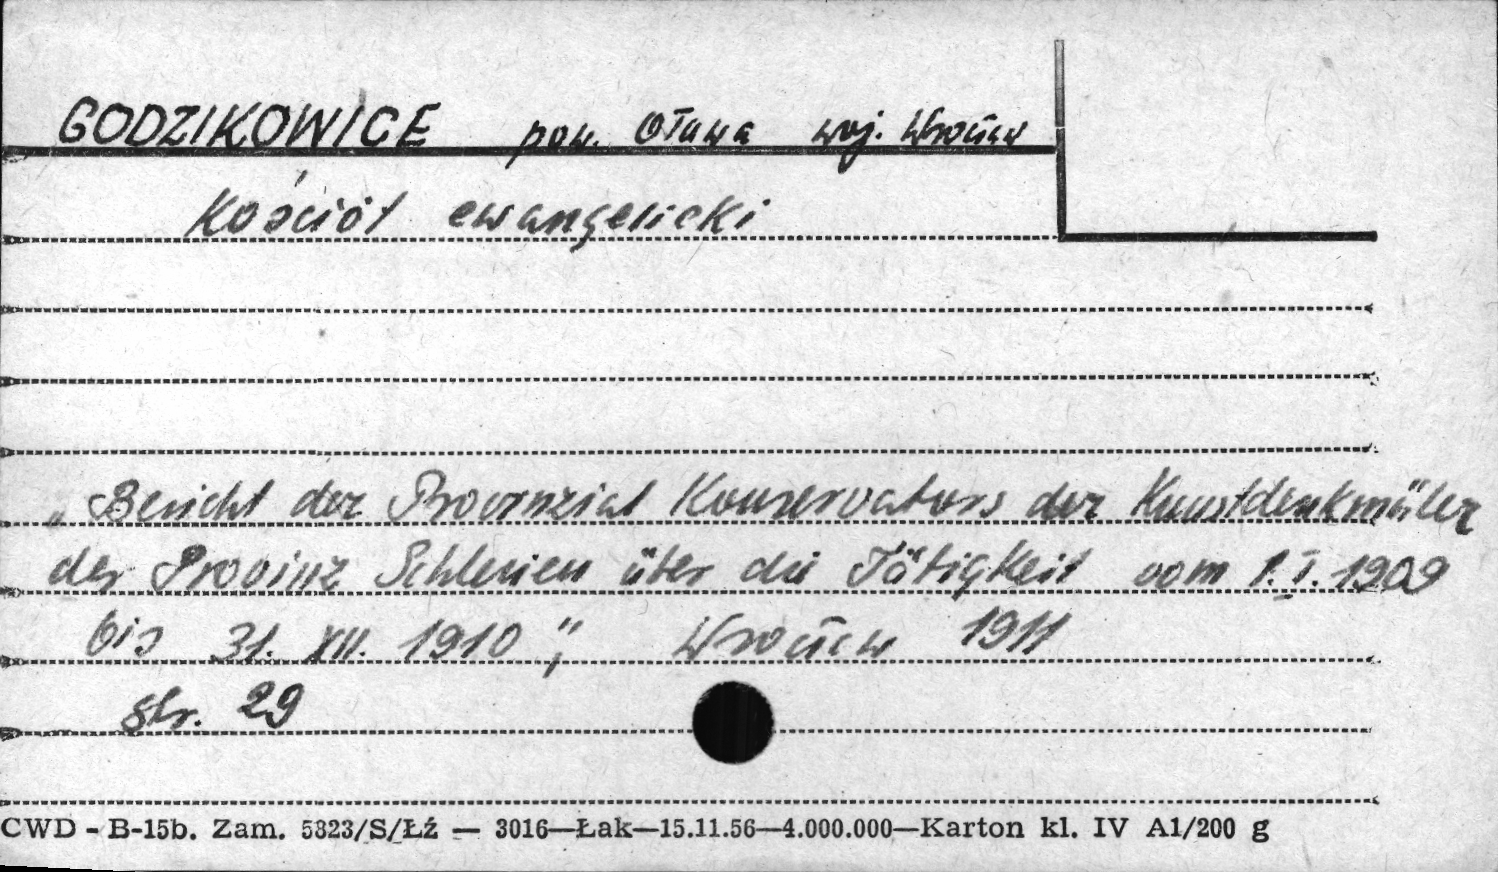 GODZIKOWICE pow. Oława woj. Wrocław
Kościół ewangelicki
„Bericht der Provinzial Konservators der Kunstdenkmäler
der Provinz Schlesien über die Tätigkeit vom 1.I.1909
bis 31. XII. 1910", Wrocław 1911
str. 29
CWD - B-15b. Zam. 5323/S/Łź — 3016—Łak—15.11.56—4.000.000—Karton kl. IV A1/200 g